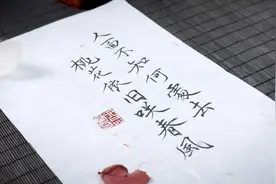 人面不知何處去
桃花依旧咲春風